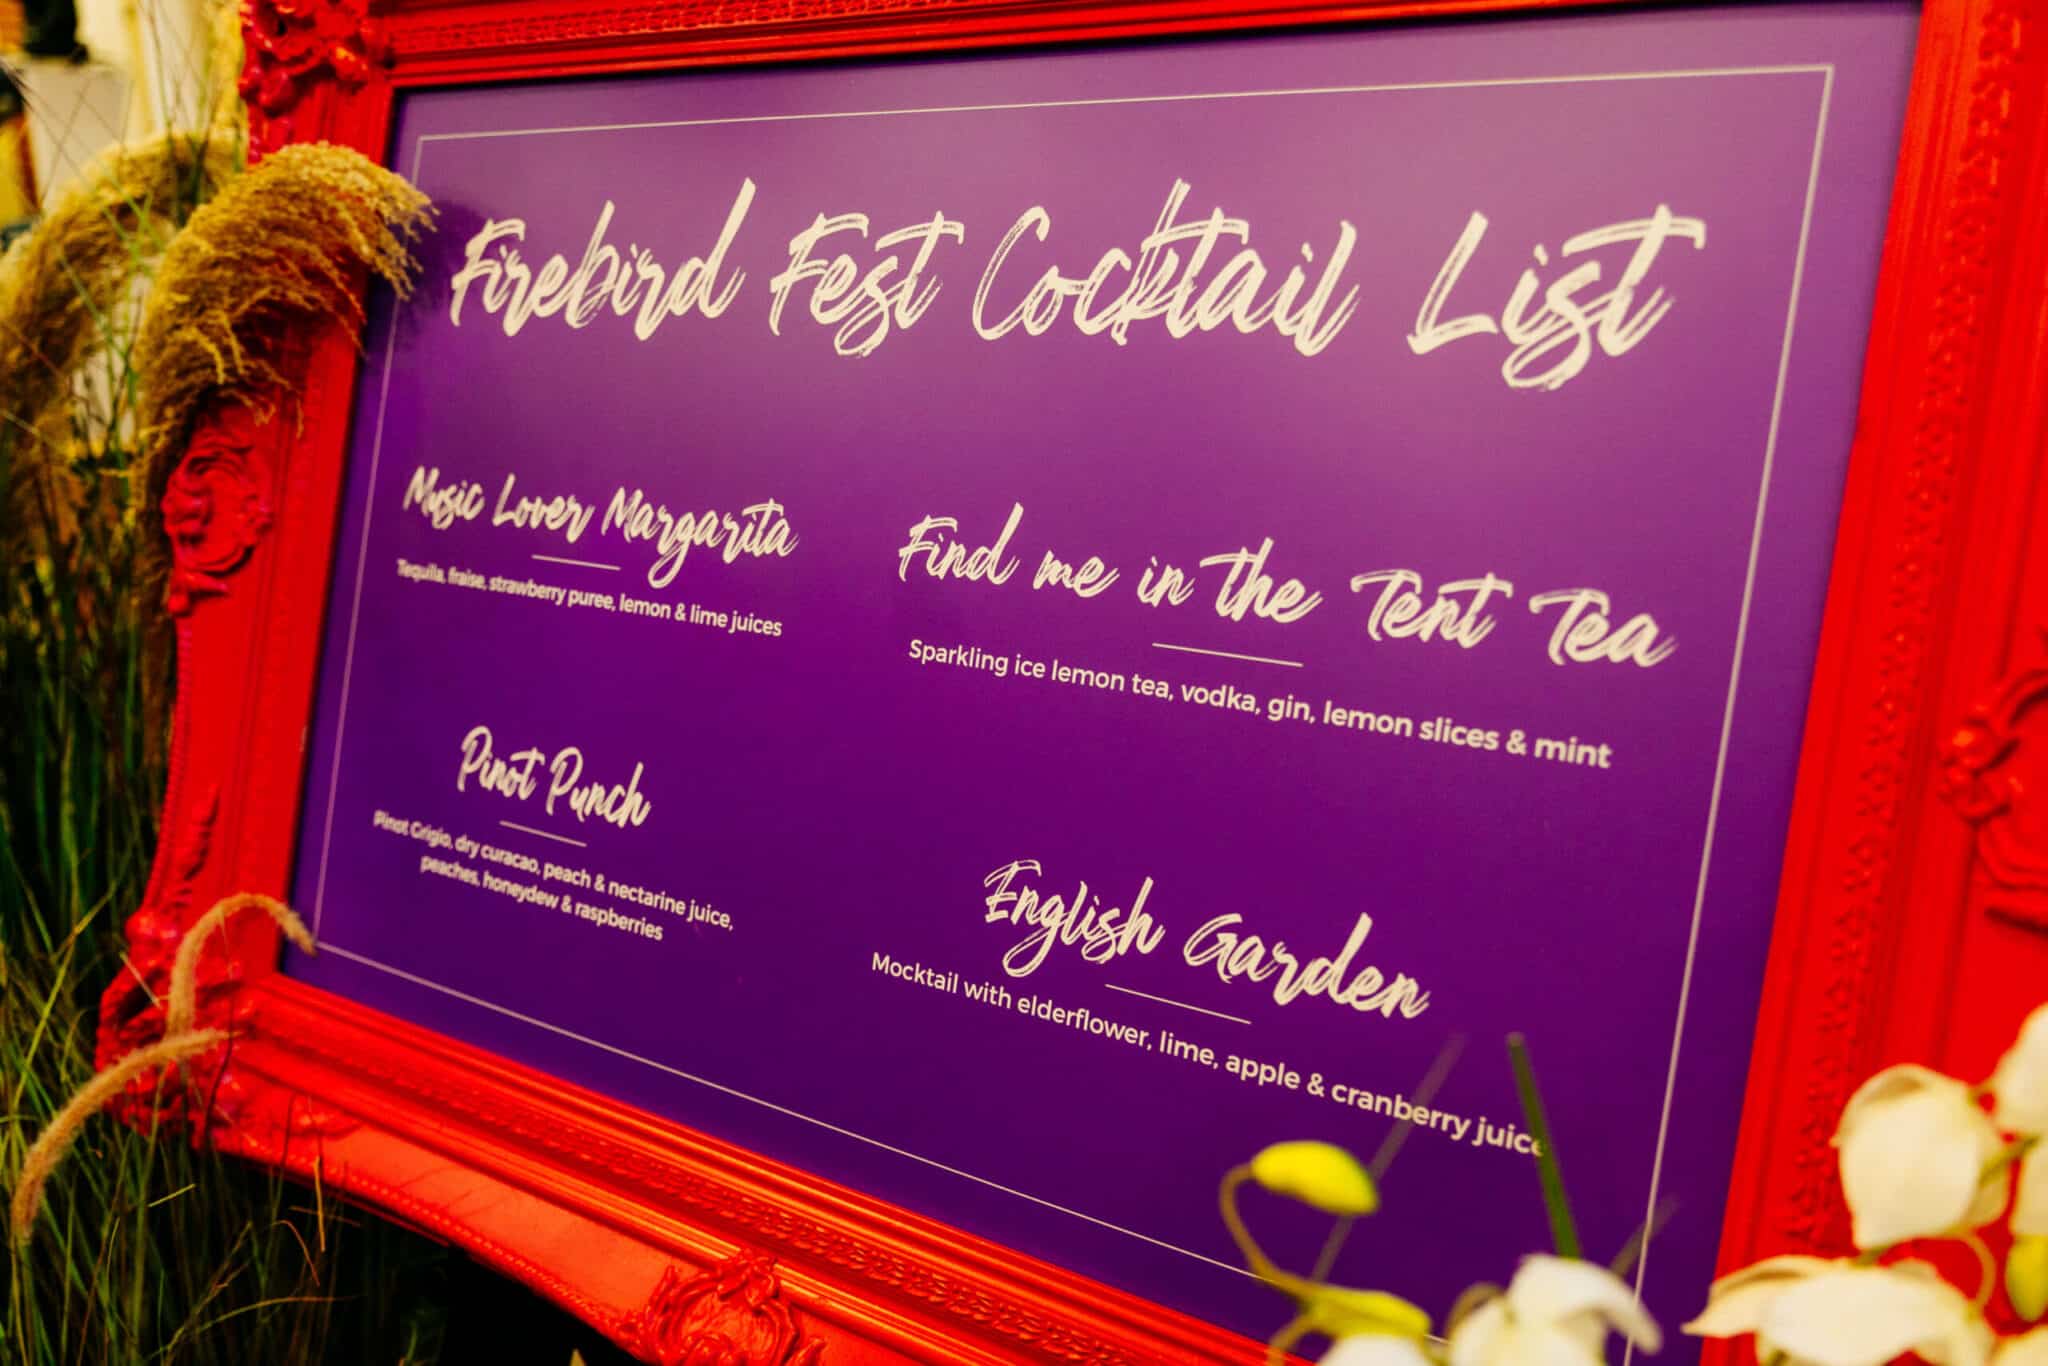 Firebird Fest Cocktail List
Music Lover Margarita
Tequila, fraise, strawberry puree, lemon & lime juices
Find me in the Tent Tea
Sparkling ice lemon tea, vodka, gin, lemon slices & mint
Pinot Punch
Pinot Grigio, dry curacao, peach & nectarine juice,
peaches, honeydew & raspberries
English Garden
Mocktail with elderflower, lime, apple & cranberry juice